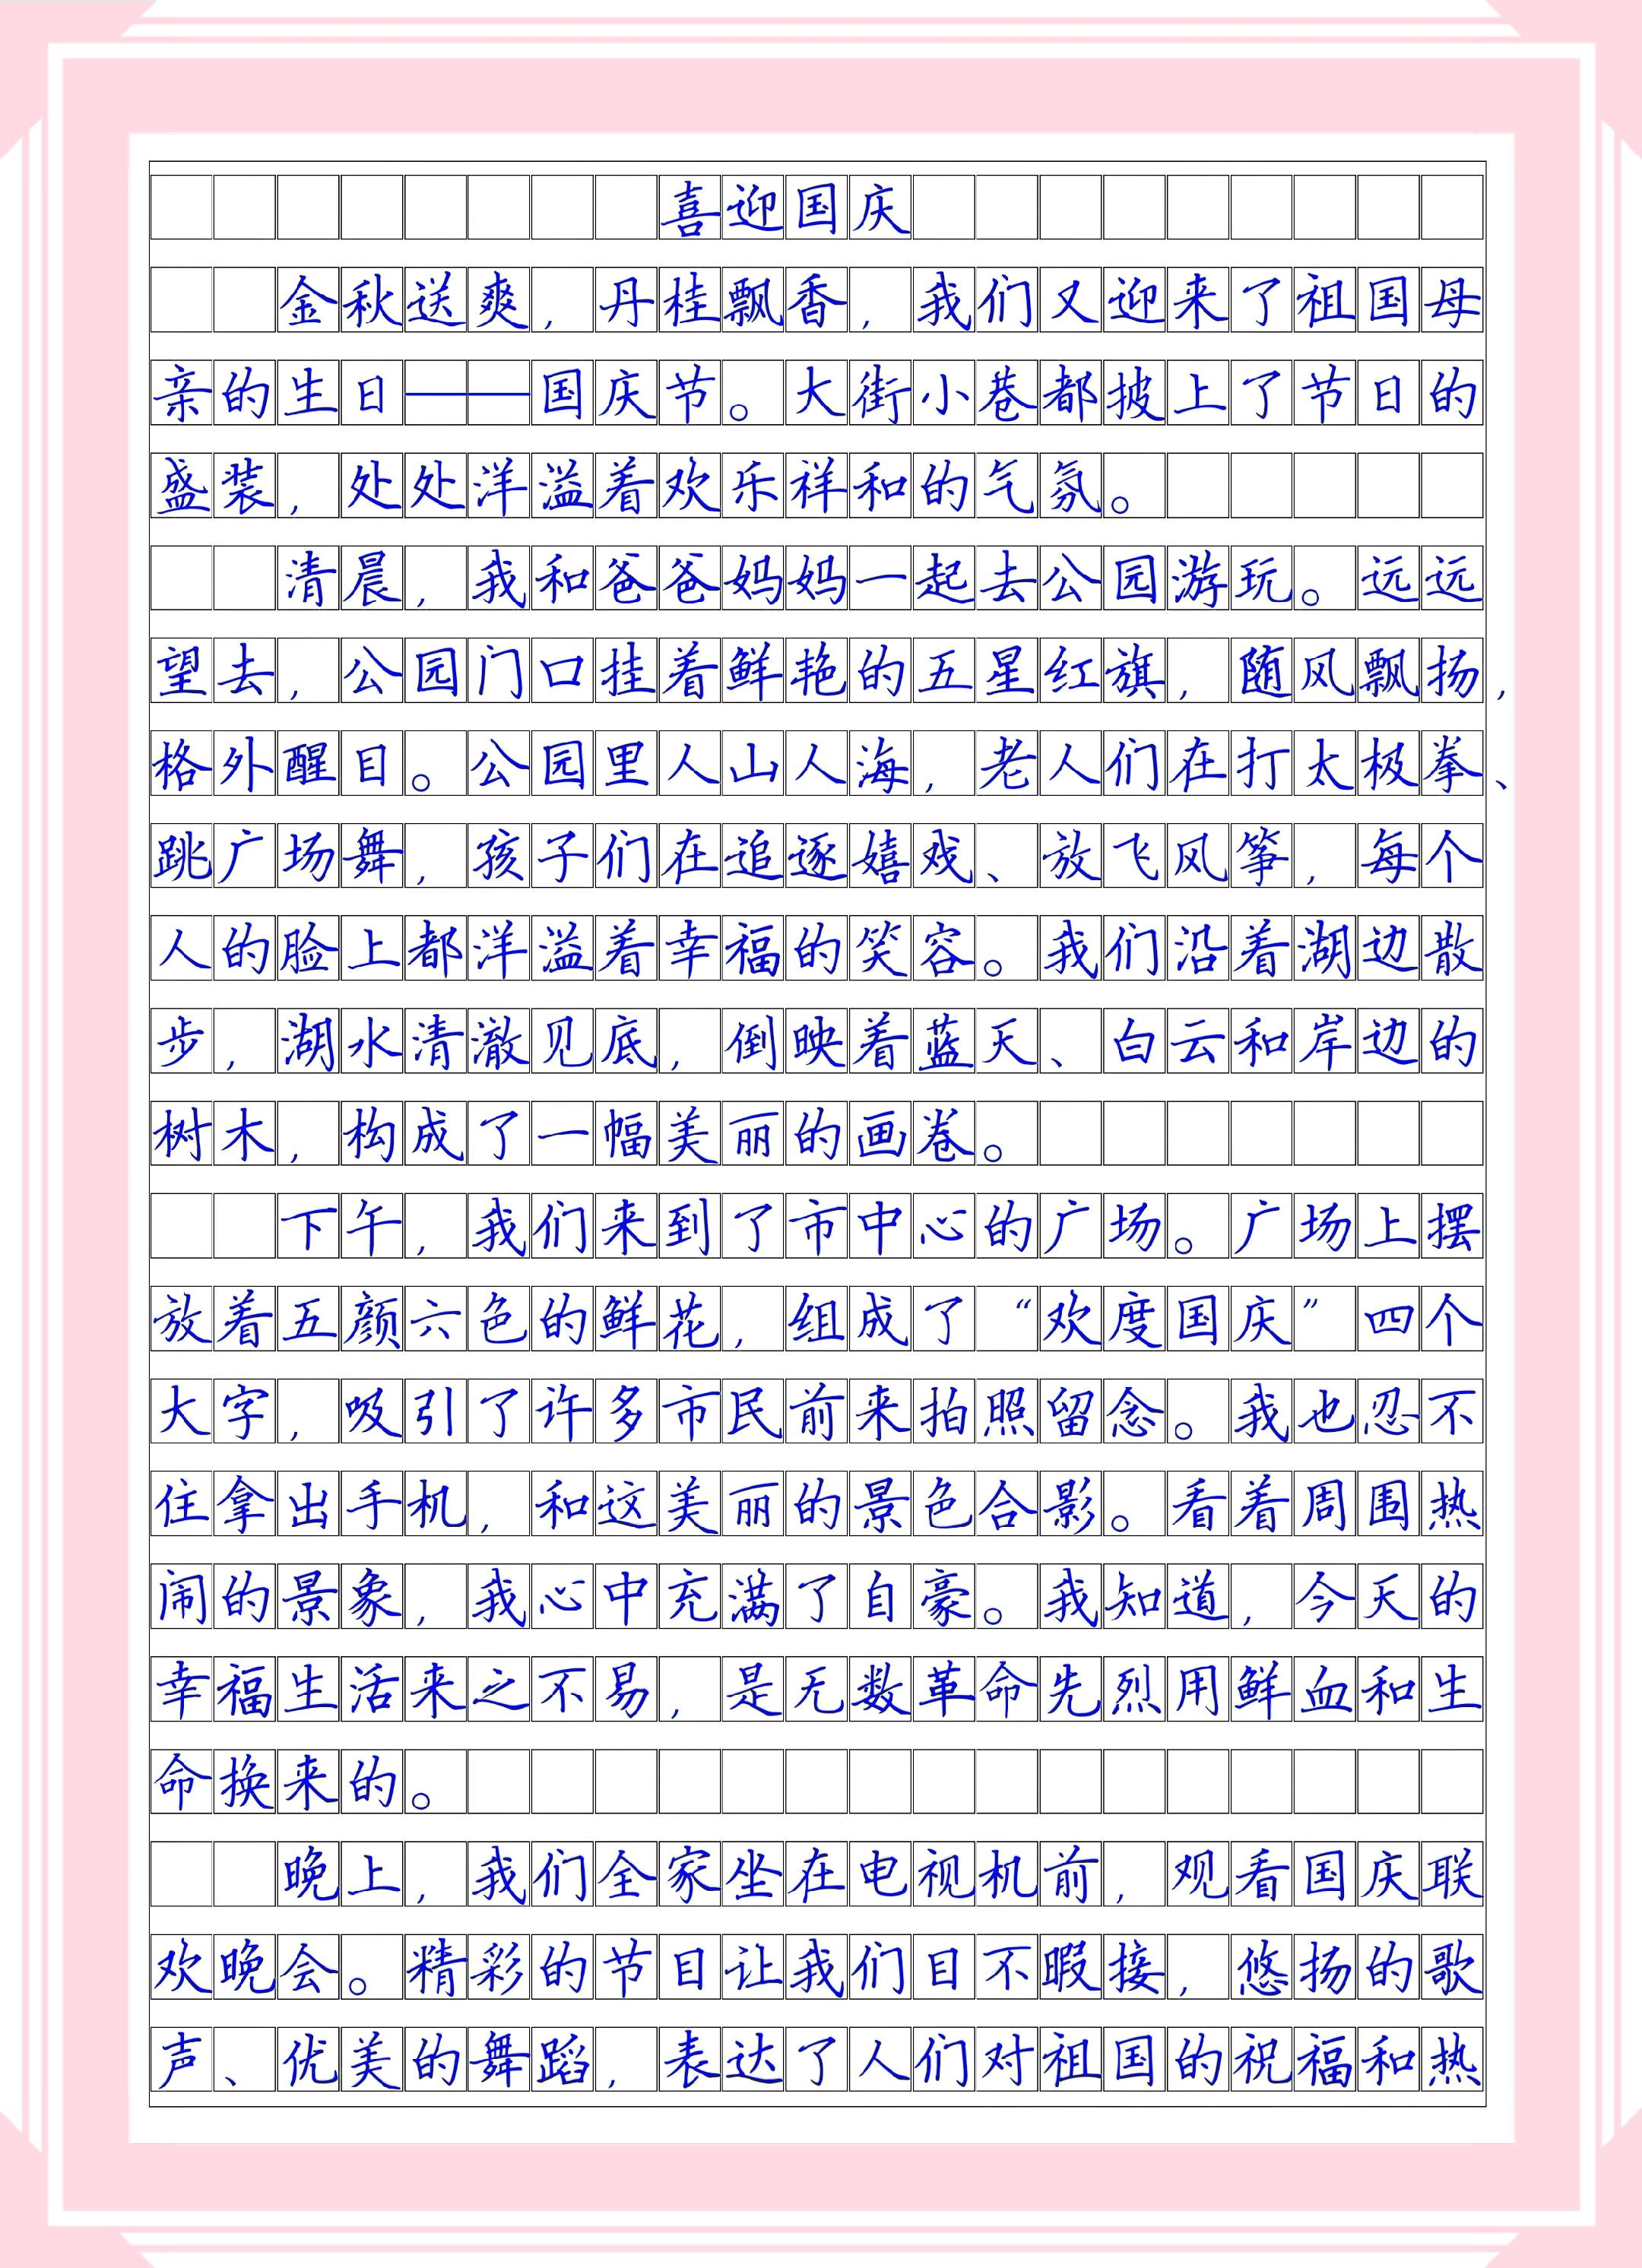 喜迎国庆
金秋送爽，丹桂飘香，我们又迎来了祖国母
亲的生日——国庆节。大街小巷都披上了节日的
盛装，处处洋溢着欢乐祥和的气氛。
清晨，我和爸爸妈妈一起去公园游玩。远远
望去，公园门口挂着鲜艳的五星红旗，随风飘扬，
格外醒目。公园里人山人海，老人们在打太极拳、
跳广场舞，孩子们在追逐嬉戏、放飞风筝，每个
人的脸上都洋溢着幸福的笑容。我们沿着湖边散
步，湖水清澈见底，倒映着蓝天、白云和岸边的
树木，构成了一幅美丽的画卷。
下午，我们来到了市中心的广场。广场上摆
放着五颜六色的鲜花，组成了“欢度国庆”四个
大字，吸引了许多市民前来拍照留念。我也忍不
住拿出手机，和这美丽的景色合影。看着周围热
闹的景象，我心中充满了自豪。我知道，今天的
幸福生活来之不易，是无数革命先烈用鲜血和生
命换来的。
晚上，我们全家坐在电视机前，观看国庆联
欢晚会。精彩的节目让我们目不暇接，悠扬的歌
声、优美的舞蹈，表达了人们对祖国的祝福和热